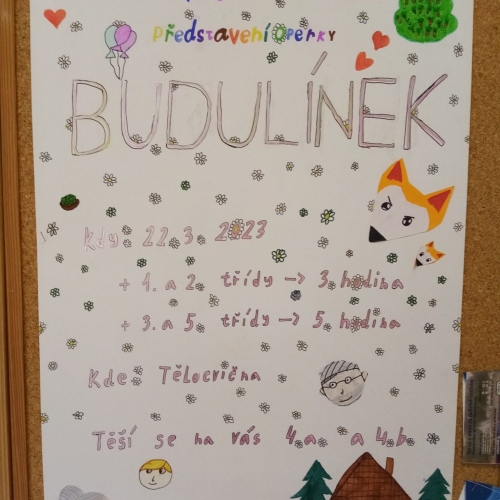 Představení operky
BUDULÍNEK
Kdy 22.3. 2023
+ 1. a 2. třídy → 3. hodina
+ 3. a 5. třídy → 5. hodina
Kde Tělocvična
Těší se na vás 4.a a 4.b